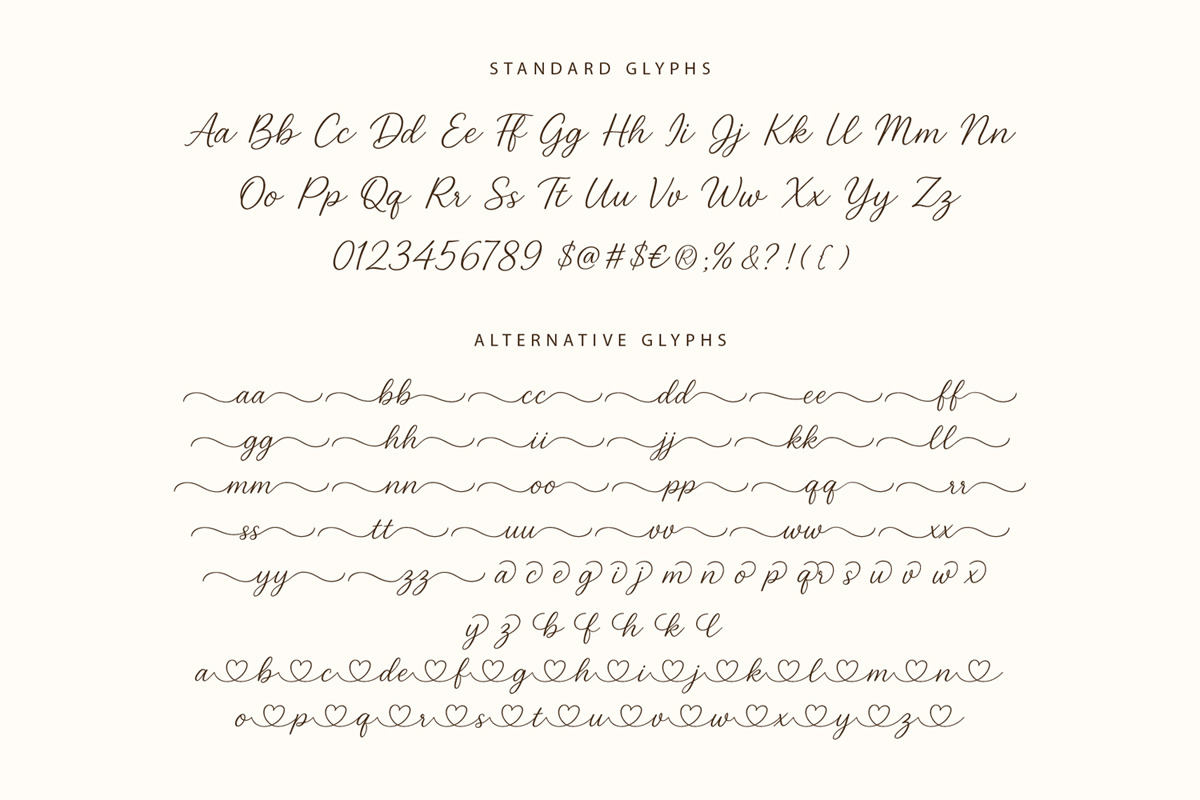 STANDARD GLYPHS
Aa Bb Cc Dd Ee Ff Gg Hh Ii Jj Kk Ll Mm Nn
Oo Pp Qq Rr Ss Tt Uu Vv Ww Xx Yy Zz
0123456789 $@#$€®;%&?!({)
ALTERNATIVE GLYPHS
aa bb cc dd ee ff
gg hh ii jj kk ll
mm nn oo pp qq rr
ss tt uu vv ww xx
yy zz a c e g i j m n o p q r s u v w x
y z b f h k l
a♡b♡c♡de♡f♡g♡h♡i♡j♡k♡l♡m♡n♡
o♡p♡q♡r♡s♡t♡u♡v♡w♡x♡y♡z♡